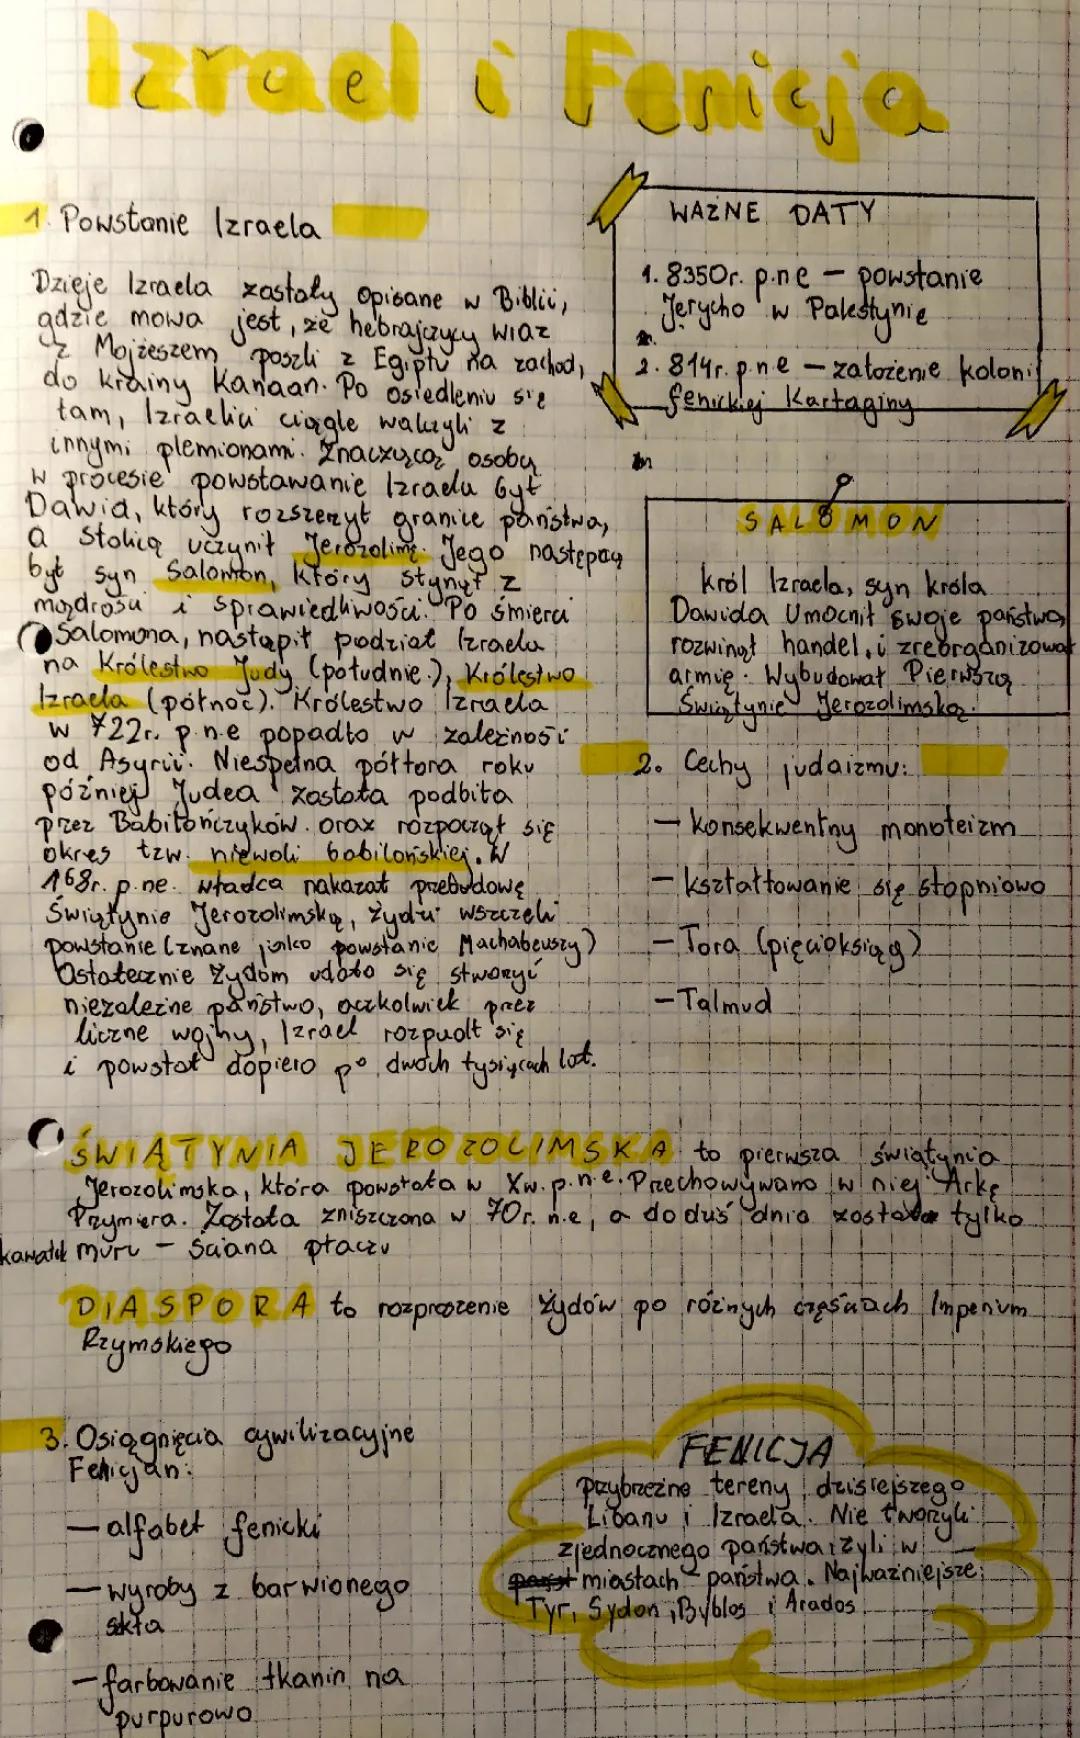 Izrael i Fenicja
1. Powstanie Izraela
Dzieje Izraela zostały opisane w Biblii,
gdzie mowa jest, że hebrajczycy wraz
z Mojżeszem poszli z Egiptu na zachod,
do krainy Kanaan. Po osiedleniu się
tam, Izraelici ciągle walczyli z
innymi plemionami. Znaczącą osobą
w procesie powstawanie Izraelu był
Dawid, który rozszerzył granice państwa,
a stolicą uczynił Jerozolimę. Jego następcą
był syn Salomon, który słynął z
mądrości i sprawiedliwości. Po śmierci
Salomona, nastąpił podział Izraelu
na Królestwo Judy (południe), Królestwo
Izraela (północ). Królestwo Izraela
w 722r. p.n.e popadło w zależności
od Asyrii. Niespełna półtora roku
później Judea została podbita
przez Babilończyków. oraz rozpoczął się
okres tzw. niewoli babilońskiej. W
168r. p.ne. władca nakazał przebudowę
Świątynie Jerozolimską, żydzi wszczęli
powstanie (znane jako powstanie Machabeuszy)
Ostatecznie żydom udało się stworzyć
niezależne państwo, aczkolwiek przez
liczne wojny, Izrael rozpadł się
i powstał dopiero po dwóch tysiącach lat.
WAŻNE DATY
1. 8350r. p.n.e — powstanie
Jerycho w Palestynie
2. 814r. p.n.e — założenie koloni
fenickiej Kartaginy
SALOMON
król Izraela, syn króla
Dawida Umocnił swoje państwo,
rozwinął handel, i zreorganizował
armię. Wybudował Pierwszą
Świątynie Jerozolimską.
2. Cechy judaizmu:
— konsekwentny monoteizm
— kształtowanie się stopniowo
— Tora (pięcioksiąg)
— Talmud
ŚWIĄTYNIA JEROZOLIMSKA to pierwsza świątynia
Jerozolimska, która powstała w Xw. p.n.e. Przechowywano w niej Arkę
Przymiera. Została zniszczona w 70r. n.e, a do duś dnia została tylko
kawałek muru — ściana płaczu
DIASPORA to rozproszenie Żydów po różnych częściach Imperium
Rzymskiego
3. Osiągnięcia cywilizacyjne
Fenicjan:
— alfabet fenicki
— wyroby z barwionego
szkła
— farbowanie tkanin na
purpurowo
FENICJA
przybrzeżne tereny dzisiejszego
Libanu i Izraela. Nie tworzyli
zjednocznego państwa i żyli w
miastach - państwa. Najważniejsze:
Tyr, Sydon, Byblos i Arados